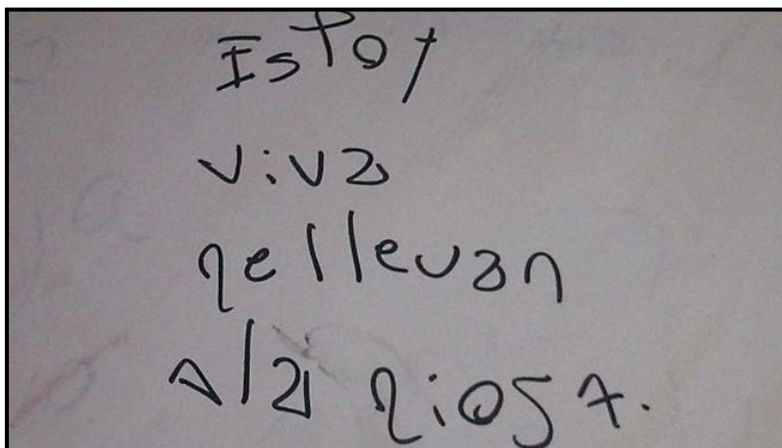 Istoy
viva
qellevan
a la qiosa.